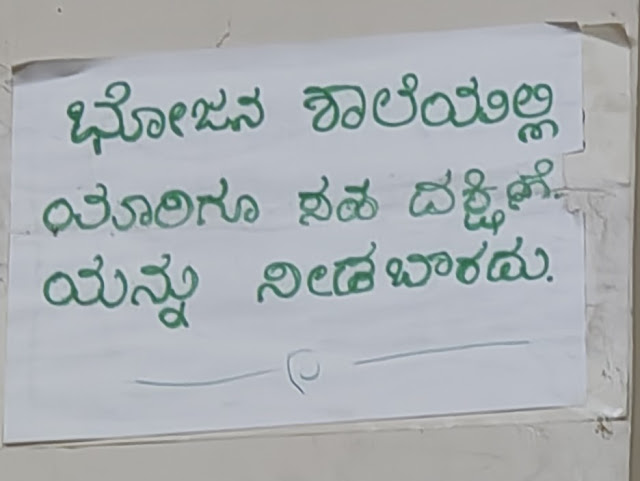 ಭೋಜನ ಶಾಲೆಯಲ್ಲಿ
ಯಾರಿಗೂ ಸಹ ದಕ್ಷಿಣೆ
ಯನ್ನು ನೀಡಬಾರದು.